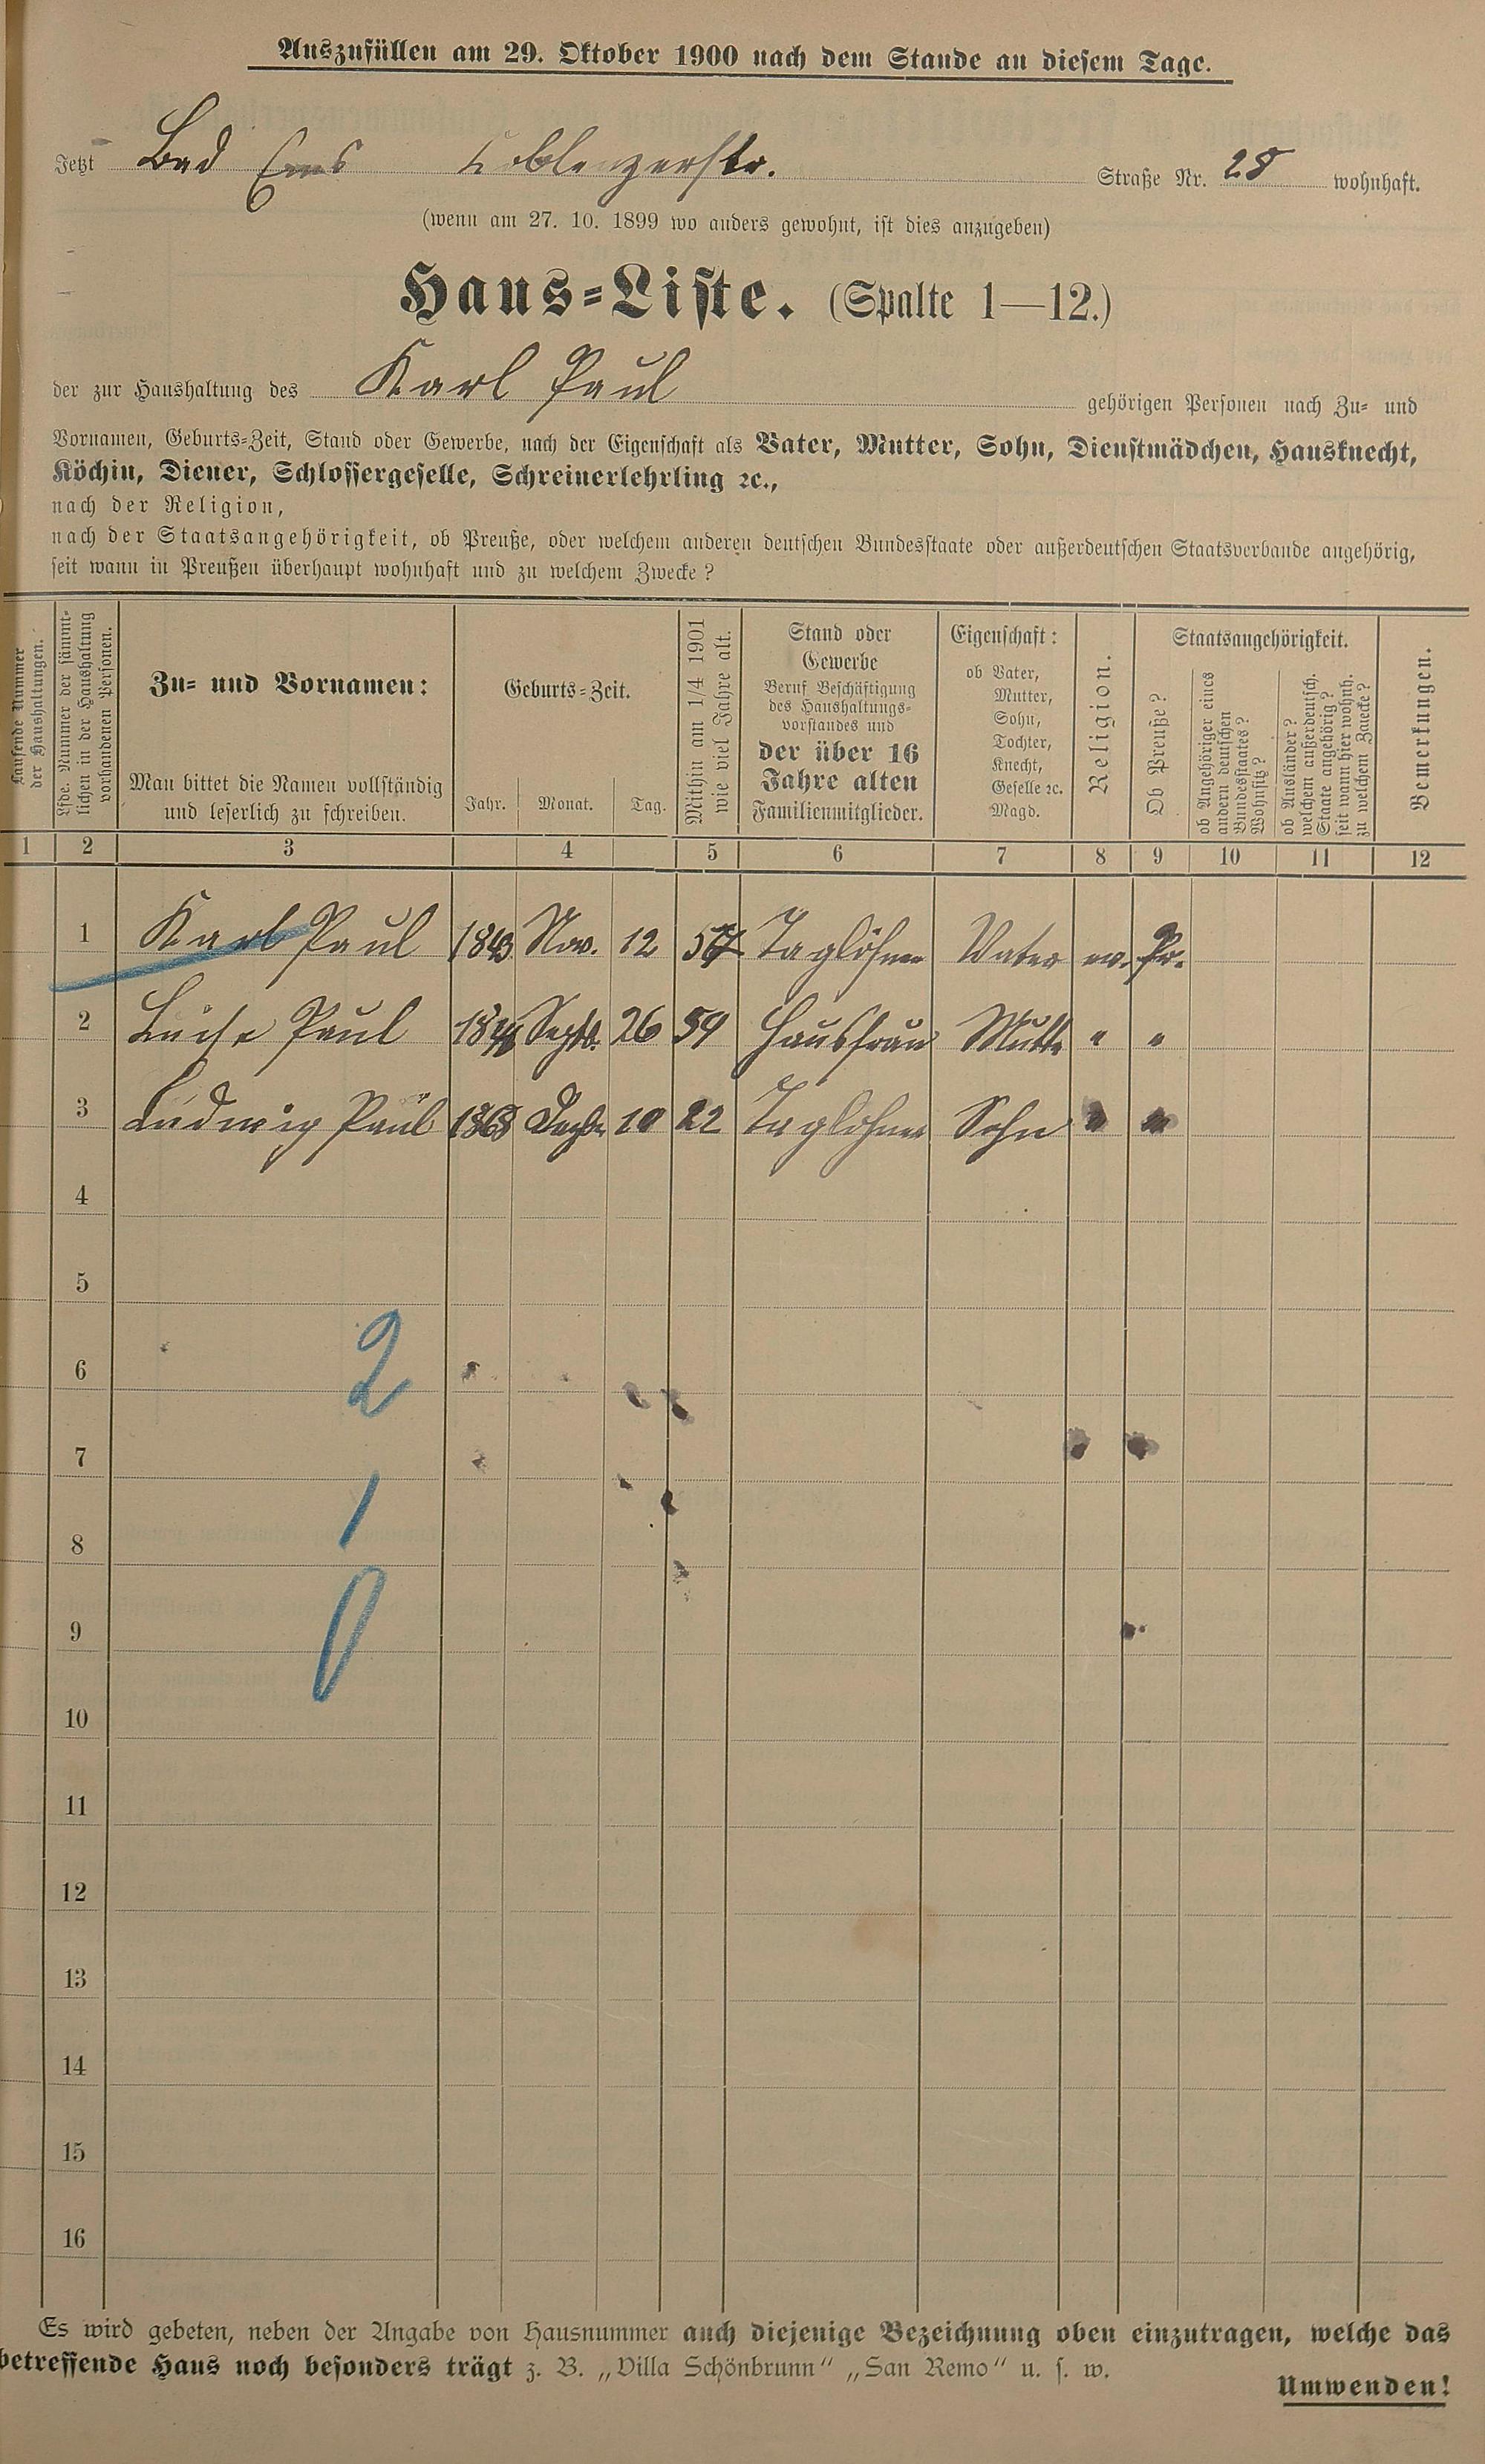 Auszufüllen am 29. Oktober 1900 nach dem Stande an diesem Tage.
Jetzt Bad Ems Coblenzerstr. Straße Nr. 28 wohnhaft.
(wenn am 27. 10. 1899 wo anders gewohnt, ist dies anzugeben)
Haus=Liste. (Spalte 1—12.)
der zur Haushaltung des Karl Paul gehörigen Personen nach Zu= und
Vornamen, Geburts=Zeit, Stand oder Gewerbe, nach der Eigenschaft als Vater, Mutter, Sohn, Dienstmädchen, Hausknecht,
Köchin, Diener, Schlossergeselle, Schreinerlehrling ꝛc.,
nach der Religion,
nach der Staatsangehörigkeit, ob Preuße, oder welchem anderen deutschen Bundesstaate oder außerdeutschen Staatsverbande angehörig,
seit wann in Preußen überhaupt wohnhaft und zu welchem Zwecke?
Laufende Nummer
der Haushaltungen.
Lfde. Nummer der sämmt=
lichen in der Haushaltung
vorhandenen Personen.
Zu= und Vornamen:
Man bittet die Namen vollständig
und leserlich zu schreiben.
Geburts=Zeit.
Jahr. Monat. Tag.
Mithin am 1/4 1901
wie viel Jahre alt.
Stand oder
Gewerbe
Beruf Beschäftigung
des Haushaltungs=
vorstandes und
der über 16
Jahre alten
Familienmitglieder.
Eigenschaft:
ob Vater,
Mutter,
Sohn,
Tochter,
Knecht,
Geselle ꝛc.
Magd.
Religion.
Staatsangehörigkeit.
Ob Preuße?
ob Angehöriger eines
andern deutschen
Bundesstaates?
Wohnsitz?
ob Ausländer?
welchem außerdeutsch.
Staate angehörig?
seit wann hier wohnh.
zu welchem Zwecke?
Bemerkungen.
1 2 3 4 5 6 7 8 9 10 11 12
1 Karl Paul 1843 Nov. 12 57 Taglöhner Vater ev. Pr.
2 Luise Paul Septb. 26 59 Hausfrau Mutter " "
3 Ludwig Paul Dezbr 10 22 Taglöhner Sohn " "
4
5
6
2
7
1
8
9
0
10
11
12
13
14
15
16
Es wird gebeten, neben der Angabe von Hausnummer auch diejenige Bezeichnung oben einzutragen, welche das
betreffende Haus noch besonders trägt z. B. „Villa Schönbrunn“ „San Remo“ u. s. w.
Umwenden!